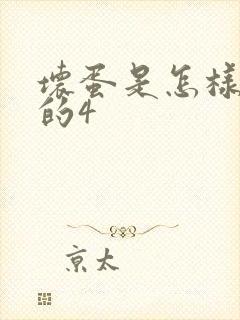 壊蛋是怎樣
的4
京太